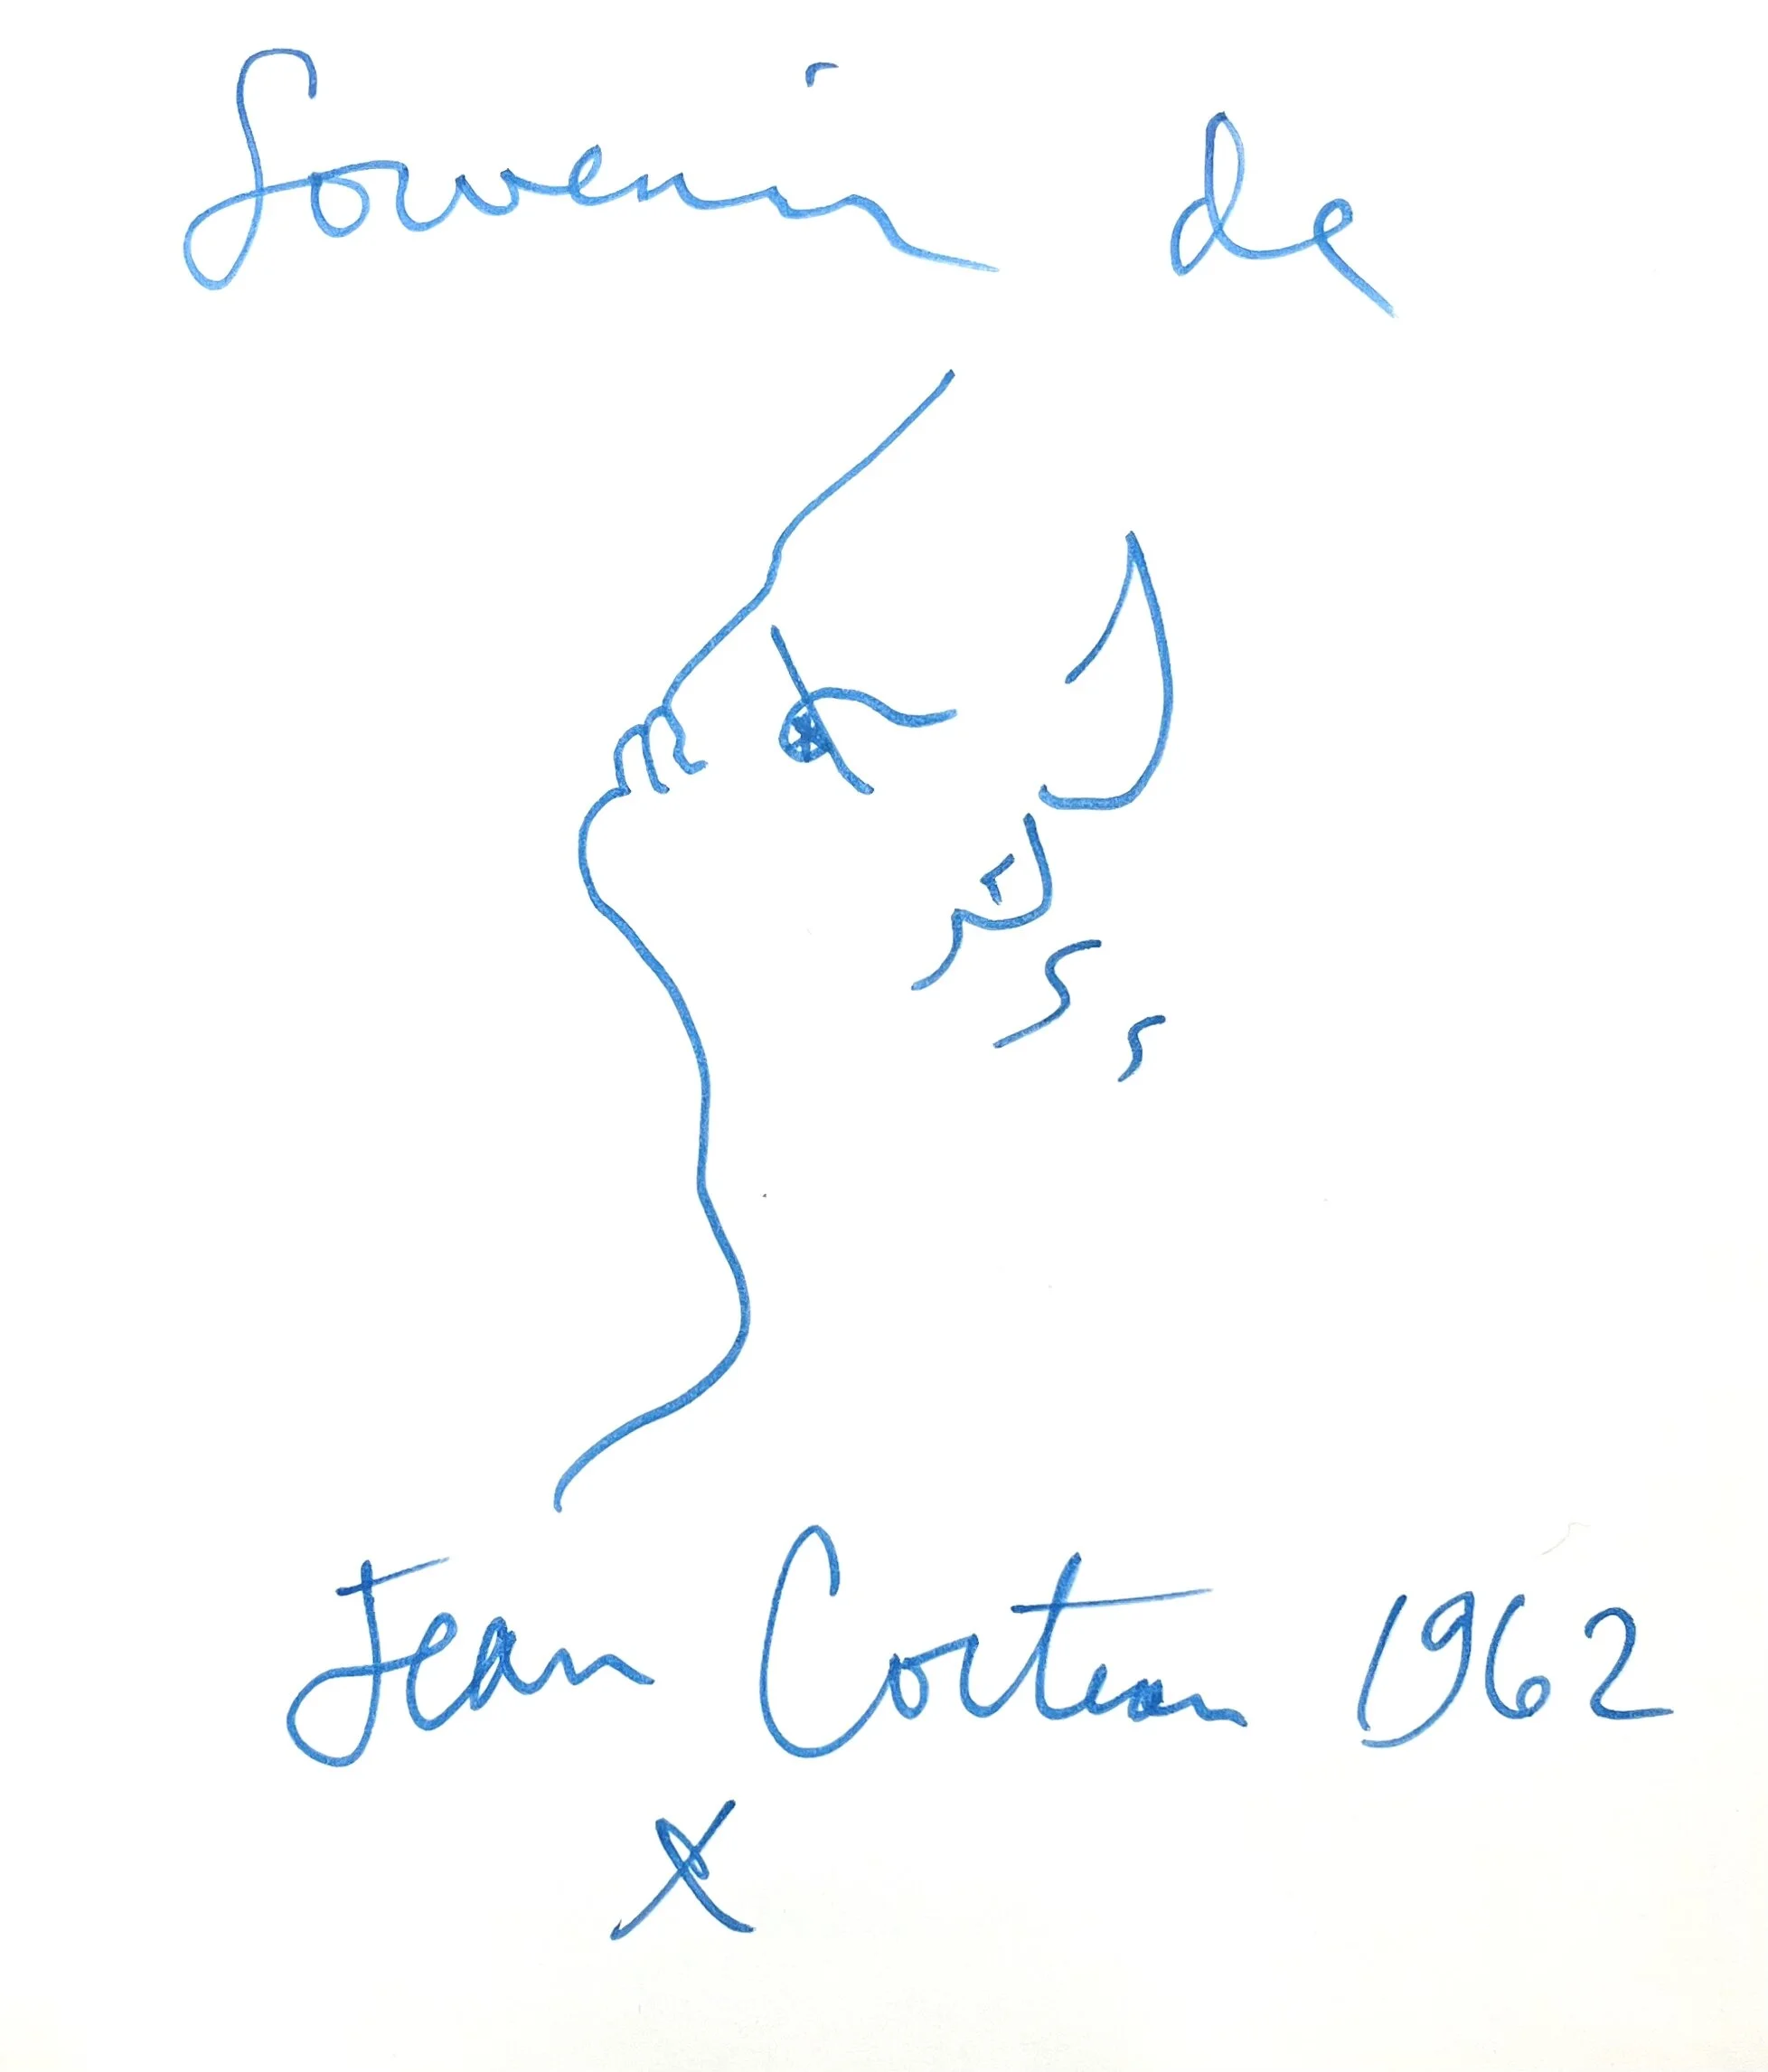 Souvenir de
Jean Cocteau 1962